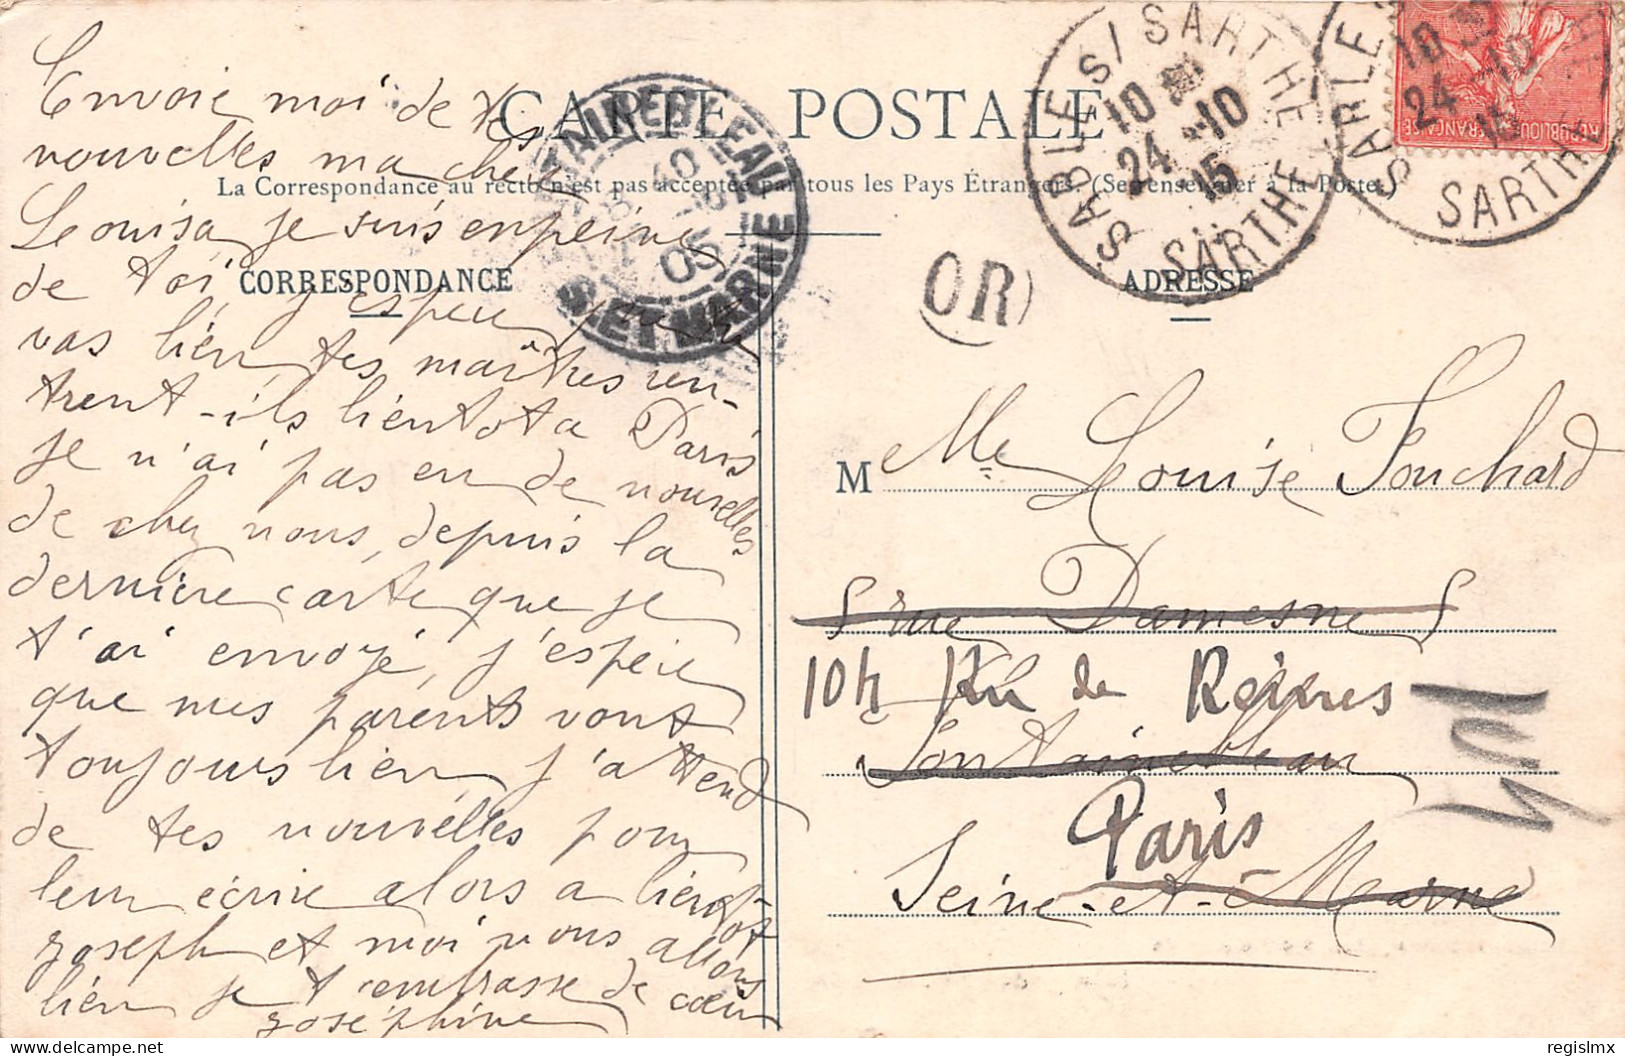 CARTE POSTALE
La Correspondance au recto n'est pas acceptée par tous les Pays Étrangers. (Se renseigner à la Poste.)
CORRESPONDANCE
ADRESSE
Envoie moi de tes
nouvelles ma chere
Louisa, je suis en peine
de toi, j'espère que tu
vas bien tes maîtres ren-
trent-ils bientot a Paris
je n'ai pas eu de nouvelles
de chez nous, depuis la
dernière carte que je
t'ai envoyé, j'espère
que mes parents vont
toujours bien, j'attend
de tes nouvelles pour
leur écrire alors a bientot
Joseph et moi nous allons
bien je t'embrasse de cœur
Joséphine
M elle Louise Fouchard
5 rue Damesne 5
104 Rue de Rennes
Fontainebleau
Paris
Seine-et-Marne
104
OR
FONTAINEBLEAU
05
S. ET MARNE
SABLE S/ SARTHE
10
24 -10
15
SARTHE
SABLE S
10
24 -10
SARTHE
REPUBLIQUE FRANCAISE
delcampe.net
regislmx